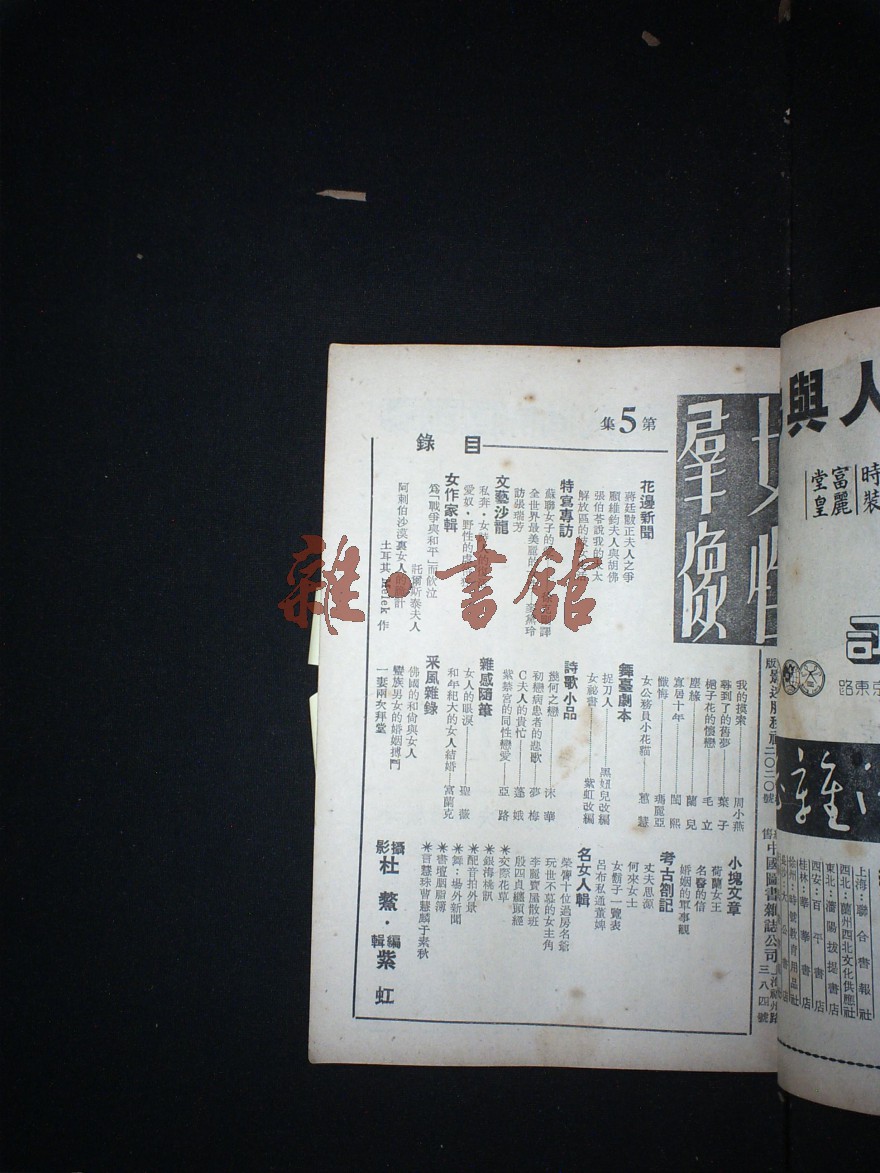 羣像
第5集
目錄
花邊新聞
蔣廷黻正夫人之爭
顧維鈞夫人與胡佛
張伯苓說我的太太
解放區的
特寫專訪
蘇聯女子的
全世界最美麗的
訪張瑞芳
文藝沙龍
私奔·女
愛奴·野性的
女作家輯
爲「戰爭與和平」而飲泣
託爾斯泰夫人
阿剌伯沙漠裏女人的
土耳其 Melek 作
我的摸索 周小燕
尋到了的舊夢 葉子
梔子花的懷戀 毛立
塵緣 蘭兒
寡居十年 閔熙
懺悔 瑪麗亞
女公務員小花貓 蕙慧
舞臺劇本
捉刀人 黑妞兒改編
女祕書 紫虹改編
詩歌小品
幾何之戀 沐華
初戀病患者的悲歌 夢梅
C夫人的貴忙 蓬娥
紫禁宮的同性戀愛 亞路
雜感隨筆
女人的眼淚 聖薇
和年紀大的女人結婚 富蘭克
采風雜錄
佛國的和尙與女人
蠻族男女的婚姻搏鬥
一妻兩次拜堂
小塊文章
荷蘭女王
名醫的信
婚姻的軍事觀
考古劄記
丈夫思源
何來女士
女鬍子一覽表
呂布私通董婢
名女人輯
榮膺十位過房名爺
李麗寶屋散班
玩世不慕的女主角
殷四貞纏頭經
＊交際花草
＊銀海桃訊
＊配音拍外景
＊舞：場外新聞
＊書壇胭脂簿
＊言慧珠曹慧麟于素秋
攝影 杜鰲·編輯 紫虹
中國圖書雜誌公司
三八四號
上海：聯合書報社
西北：蘭州西北文化供應社
東北：瀋陽拔提書店
西安：百平書店
桂林：華華書店
人與
時裝
富麗
堂皇
司
京東路
雜·書館